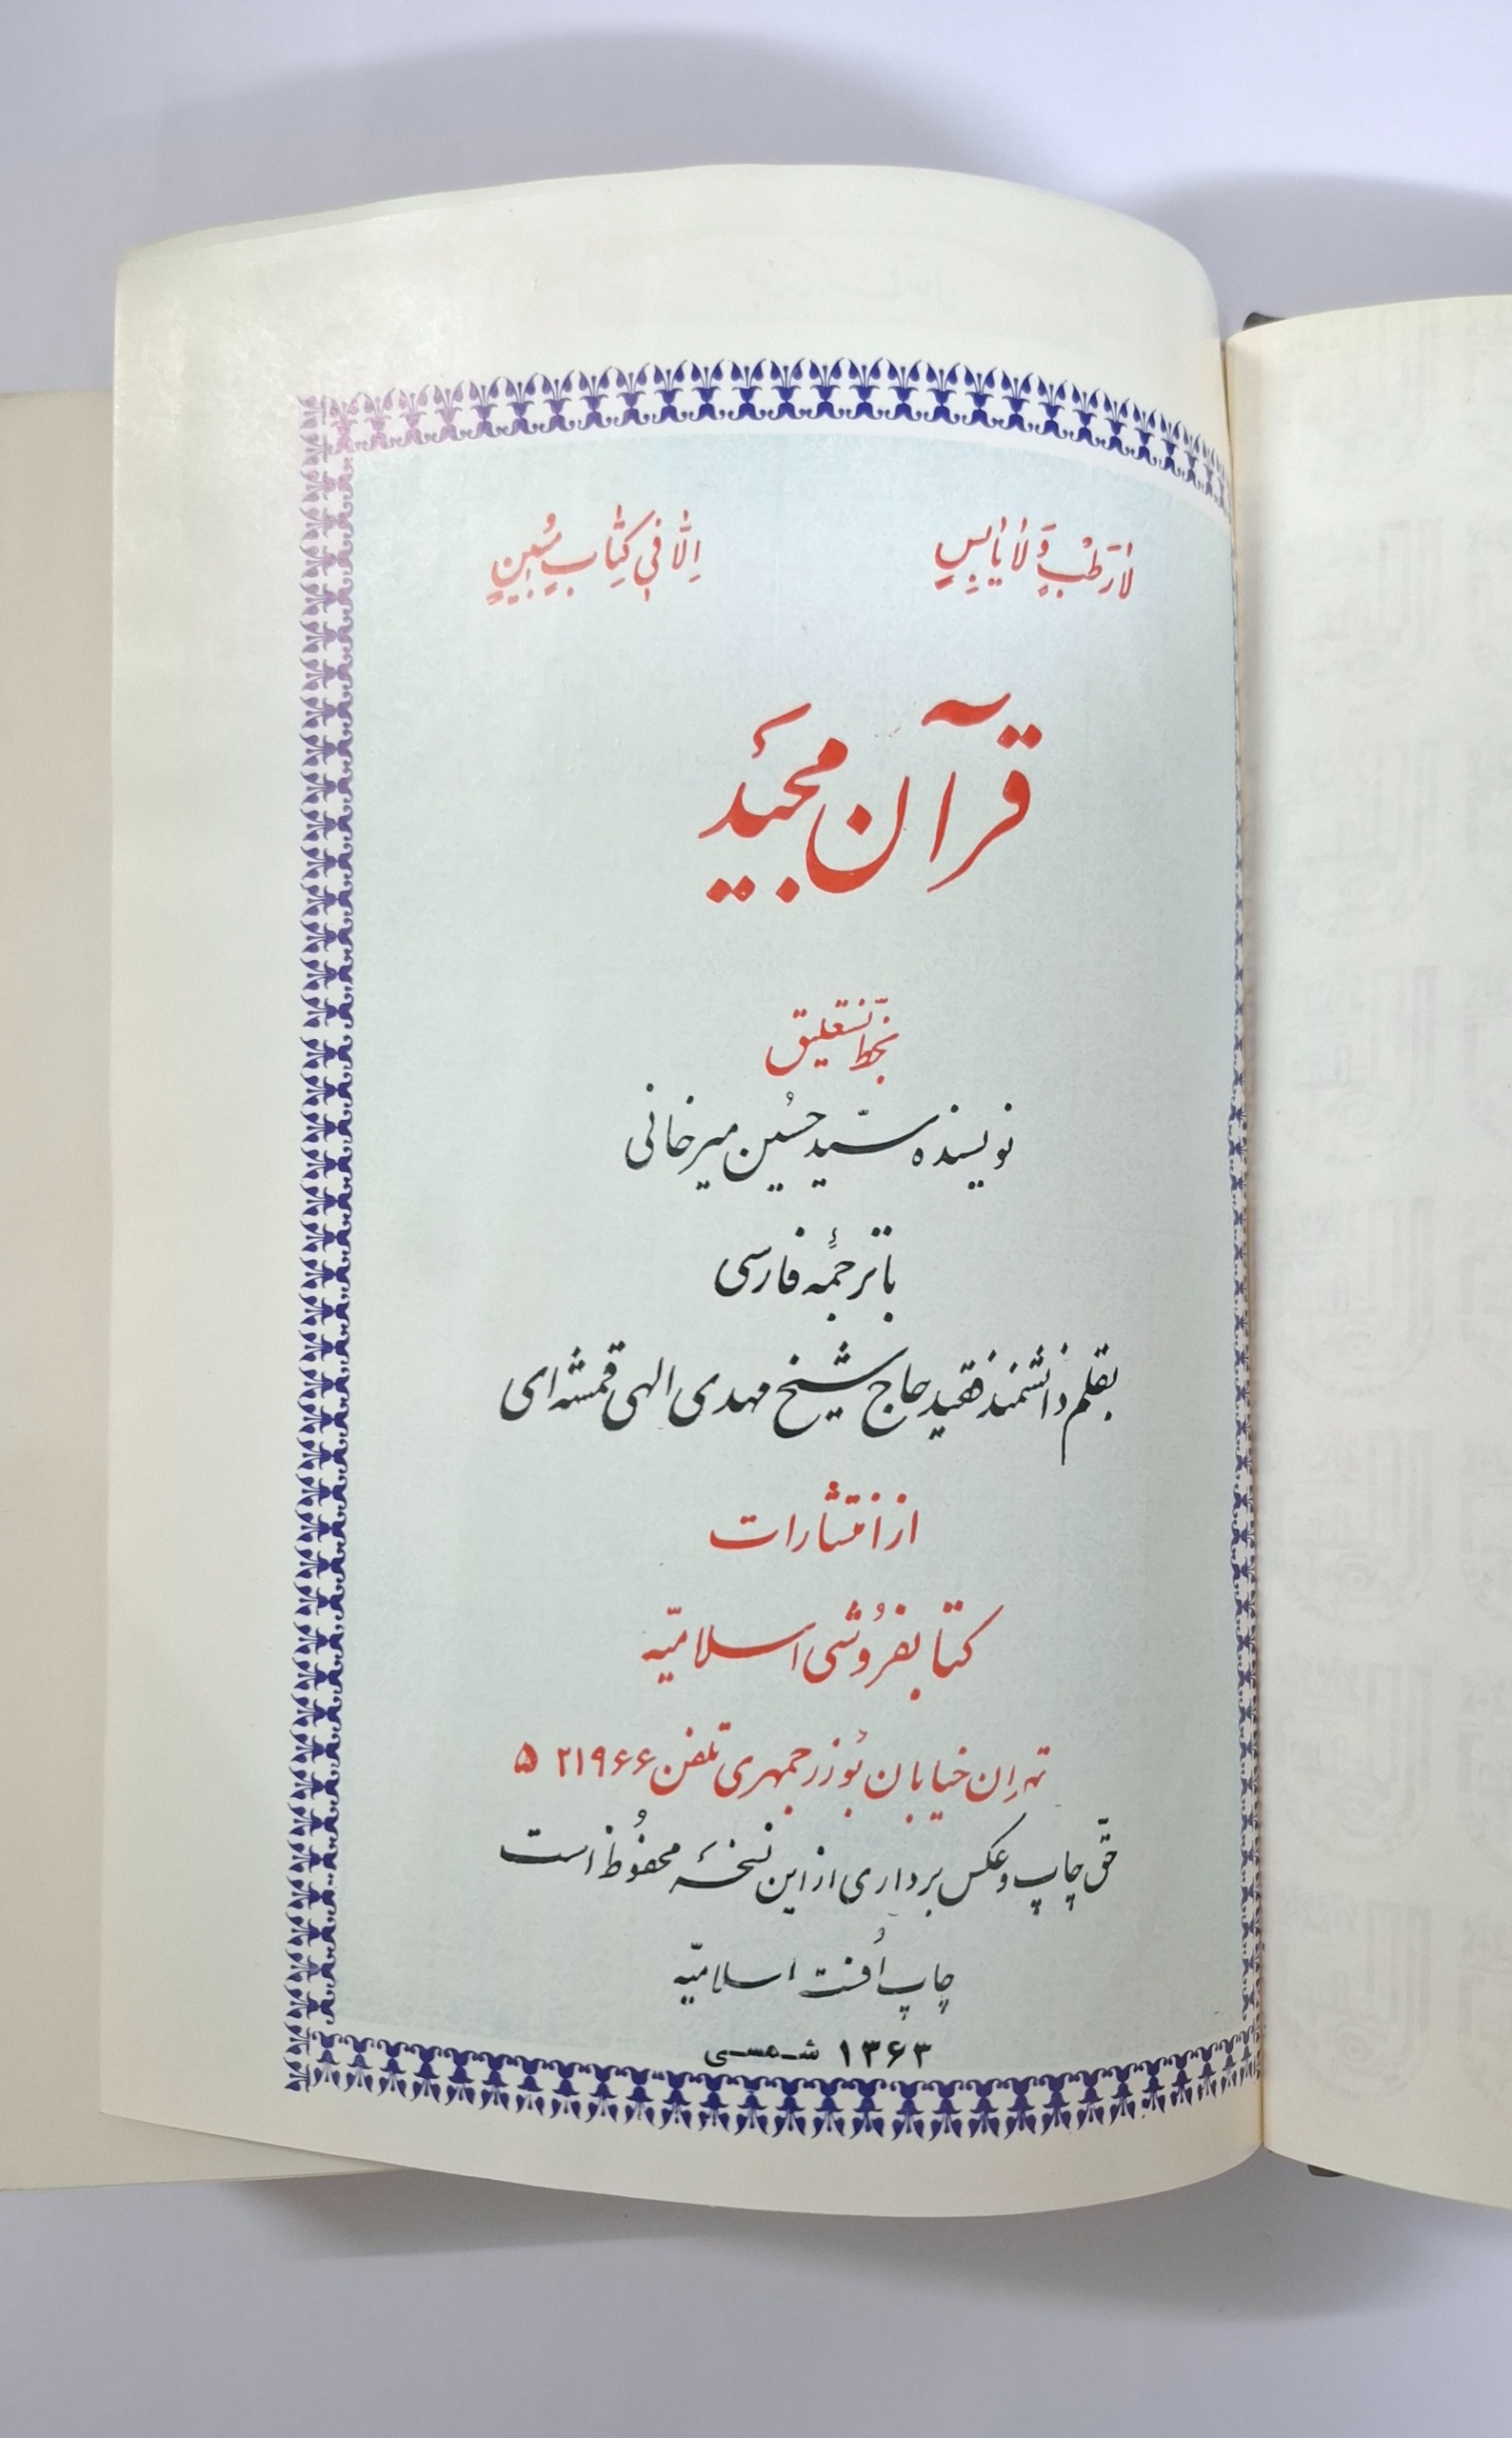 لا رَطْبٍ وَلا یابِسٍ اِلّا فی کِتابٍ مُبینٍ
قرآن مجید
بخطّ نستعلیق
نویسنده سیّد حسُین میرخانی
با ترجمهٔ فارسی
بقلم دانشمند فقید حاج شیخ مهدی الهی قمشه‌ای
از انتشارات
کتابفرُوشی اسلامیّه
تهران خیابان بُوزرجمهری تلفن ۵۲۱۹۶۶
حقّ چاپ و عکس برداری از این نسخهٔ محفُوظ است
چاپ اُفست اسلامیّه
۱۳۶۳ شمسی